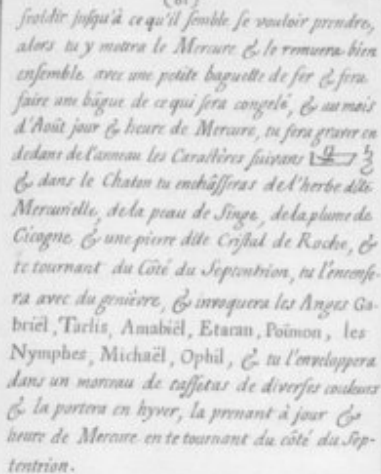 froidir jusqu'à ce qu'il semble se vouloir prendre,
alors tu y mettra le Mercure & le remuera bien
ensemble avec une petite baguette de fer & fera
faire une bâgue de ce qui sera congelé, & au mois
d'Août jour & heure de Mercure, tu fera graver en
dedans de l'anneau les Caractères suivans
& dans le Chaton tu enchâsseras de l'herbe dite
Mercurielle, de la peau de Singe, de la plume de
Cicogne & une pierre dite Cristal de Roche, &
te tournant du Côté du Septentrion, tu l'encense-
ra avec du geniévre, & invoquera les Anges Ga-
briël, Tarlis, Amabiël, Etaran, Poïmon, les
Nymphes, Michaël, Ophil, & tu l'enveloppera
dans un morceau de taffetas de diverses couleurs
& la portera en hyver, la prenant à jour &
heure de Mercure en te tournant du côté du Sep-
tentrion.